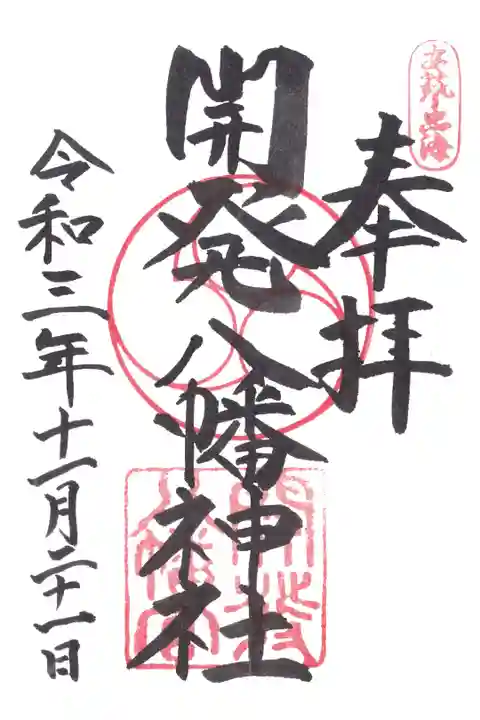 奉拝
開発八幡神社
令和三年十一月二十一日